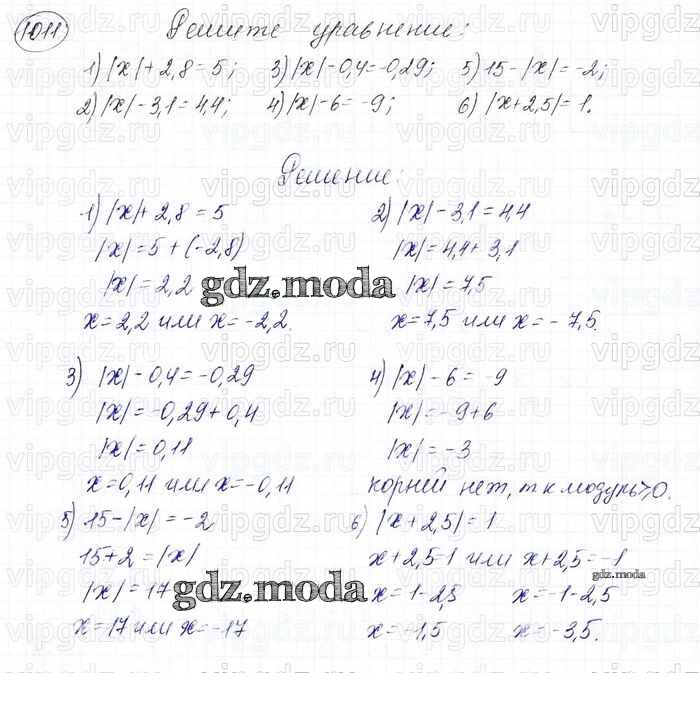 1011 Решите уравнение:
1) |x| + 2,8 = 5; 3) |x| - 0,4 = -0,29; 5) 15 - |x| = -2;
2) |x| - 3,1 = 4,4; 4) |x| - 6 = -9; 6) |x + 2,5| = 1.
Решение:
1) |x| + 2,8 = 5
|x| = 5 + (-2,8)
|x| = 2,2
x = 2,2 или x = -2,2.
2) |x| - 3,1 = 4,4
|x| = 4,4 + 3,1
|x| = 7,5
x = 7,5 или x = - 7,5.
gdz.moda
3) |x| - 0,4 = -0,29
|x| = -0,29 + 0,4
|x| = 0,11
x = 0,11 или x = -0,11
4) |x| - 6 = -9
|x| = -9 + 6
|x| = -3
корней нет, т к модуль ≥ 0.
5) 15 - |x| = -2
15 + 2 = |x|
|x| = 17
x = 17 или x = -17
gdz.moda
6) |x + 2,5| = 1
x + 2,5 = 1 или x + 2,5 = -1
x = 1 - 2,5 x = -1 - 2,5
x = -1,5 x = -3,5.
gdz.moda
vipgdz